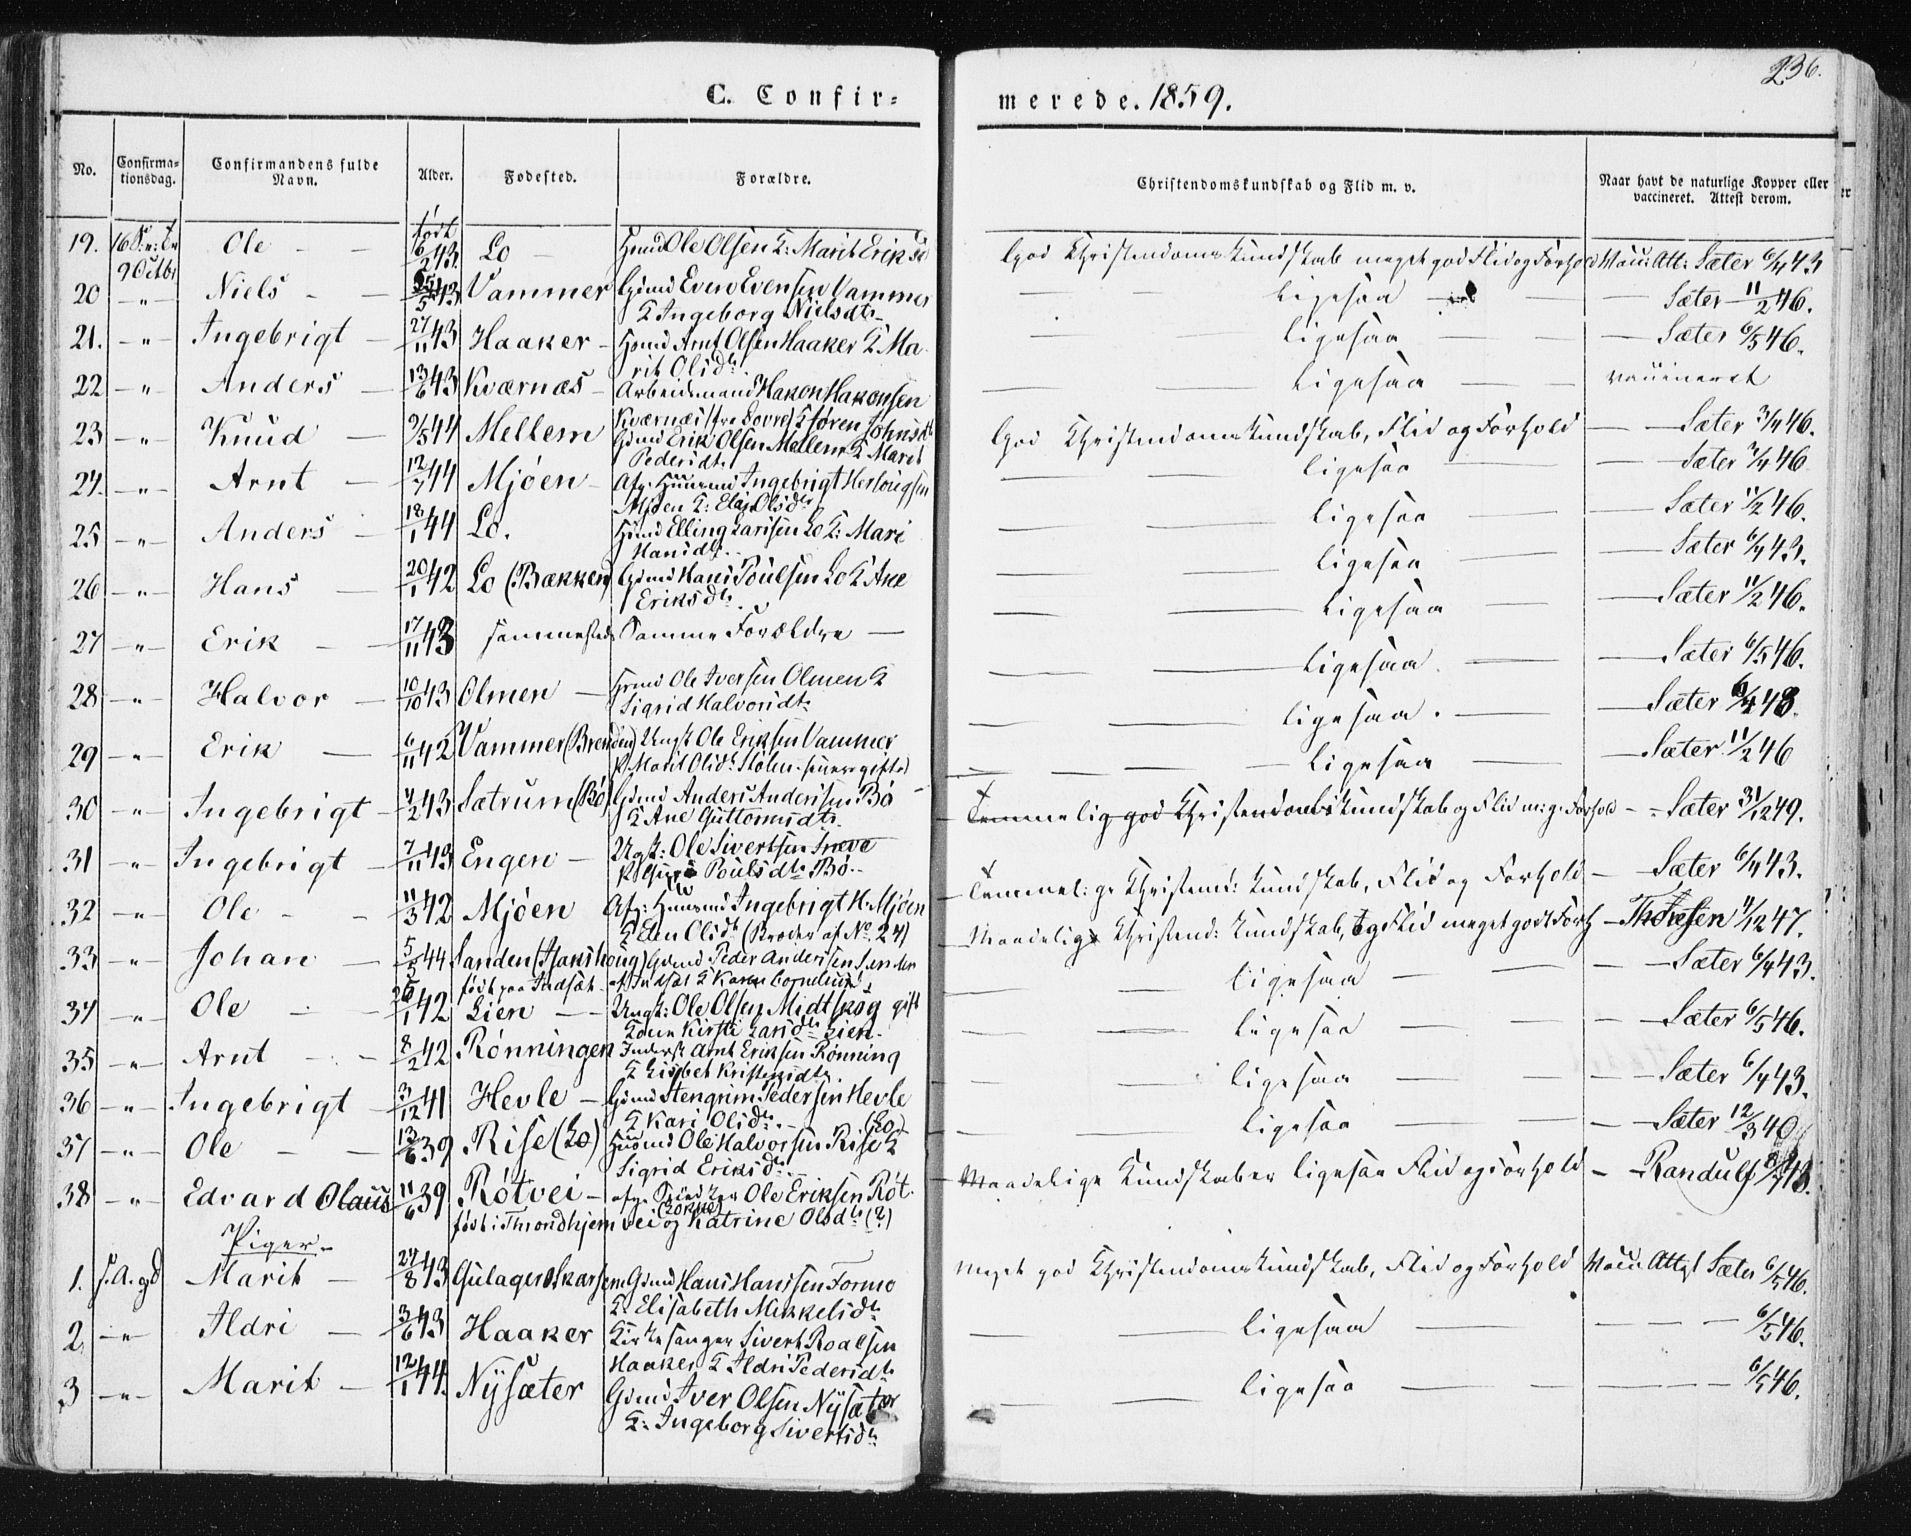 236.
C. Confir=
merede. 1859.
No. Confirma=tionsdag. Confirmandens fulde Navn. Alder. Fødested. Forældre. Christendomskundskab og Flid m. v. Naar havt de naturlige Kopper eller vaccineret. Attest derom.
født
19. 16 S. e: Tr 9 Octbr Ole 6/2 43. Lo Huusmd Ole Olsen K: Marit Eriksd God Christendomskundskab meget god Flid og Forhold Vacc: Att: Sæter 6/4 43
20 -"- Niels 43 Vammer Gdmd Even Evensen Vammer ligesaa Sæter 11/2 46.
K Ingeborg Nielsdtr
21. -"- Ingebrigt 27/11 43 Haaker Huusmd Arnt Olsen Haaker K Ma- ligesaa Sæter 6/5 46.
rit Olsdtr
22 -"- Anders 13/6 43 Kværnæs Arbeidsmand Hakon Hakonsen ligesaa vaccineret
Kværnæs (fra Dovre) K Søren Johnsdtr
23 -"- Knud 9/5 44 Mellem Gdmd Erik Olsen Mellem K Marit God Christendomskundskab, Flid og Forhold Sæter 3/4 46.
Pedersdtr
24. -"- Arnt 12/7 44 Mjøen Afg. Huusmd Ingebrigt Herlougsen ligesaa Sæter 3/4 46
Mjøen K: Eli Olsdtr
25 -"- Anders 18/1 44 Lo. Huusmd Elling Larsen Lo K: Mari ligesaa Sæter 11/2 46.
Hansdtr.
26 -"- Hans 20/1 42 Lo (Bækken) Gdmd Hans Poulsen Lo K Ane ligesaa Sæter 6/4 43.
Eriksdtr.
27 -"- Erik 17/11 43 sammested Samme Forældre ligesaa Sæter 11/2 46.
28 -"- Halvor 10/10 43 Olmen Huusmd Ole Iversen Olmen K ligesaa. Sæter 6/5 46.
Sigrid Halvorsdtr
29 -"- Erik 6/11 42 Vammer (Brenden) Ungk Ole Eriksen Vammer ligesaa. Sæter 6/4 43.
P. Marit Olsdtr Stølen. senere gifte) ligesaa Sæter 11/2 46
30 -"- Ingebrigt 4/2 43 Sætrum (Bø) Gdmd Anders Andersen Bø Temmelig god Christendomskundskab og Flid m: g. Forhold Sæter 31/12 49.
K Ane Guttormsdtr.
31 -"- Ingebrigt 7/11 43 Engen Ungk: Ole Sivertsen Snæve Temmel: ge Christend: kundskab, Flid og Forhold Sæter 6/4 43.
P. Guri Poulsdtr Bø.
32 -"- Ole 11/3 42 Mjøen Afg: Huusmd Ingebrigt H. Mjøen Maadelig Christend: kundskab, og Flid meget godt Forh Thoresen 4/12 47.
K Elen Olsdtr (Broder af No 24)
33 -"- Johan 5/5 44 Sanden (Hakshoug) Gdmd Peder Andersen Sanden ligesaa Sæter 6/4 43.
født paa Indsæt. af Indsæt K Karen Cornelius
34 -"- Ole 42 Lien Ungk: Ole Olsen Midtskog gift ligesaa Sæter 6/5 46.
Kone Kirsti Larsdtr Lien.
35 -"- Arnt 8/2 42 Rønningen Inderst Arnt Eriksen Rønning ligesaa Sæter 6/4 43.
K Lisbet Kristensdtr.
36 -"- Ingebrigt 3/12 41 Hevle Gdmd Stengrim Pedersen Hevle ligesaa Sæter 12/3 40
K Kari Olsdtr. (Lo)
37 -"- Ole 13/6 39 Rise (Lo) Huusmd Ole Halvorsen Rise K Maadelige Kundskaber ligesaa Flid og Forhold Randulf 43.
Sigrid Eriksdtr.
38 -"- Edvard Olaus 11/6 39 Røtvei afg. Snedker Ole Eriksen Røt-
født i Throndhjem vei og Katrine Olsdtr (?)
Piger.
1. s. A. og d Marit 24/8 43 Gulager Skarsem Gdmd Hans Hanssen Formo Meget god Christendomskundskab, Flid og Forhold Vacc. Attst Sæter 6/5 46.
K. Elisabeth Mikkelsdtr
2. -"- Ildri 3/6 43 Haaker Kirkesanger Sivert Roalsen ligesaa 6/5 46.
Haaker K Ildri Pedersdtr
3 -"- Marit 12/1 44. Nysæter Gdmd Iver Olsen Nysæter ligesaa 6/5 46.
K: Ingeborg Sivertsdtr